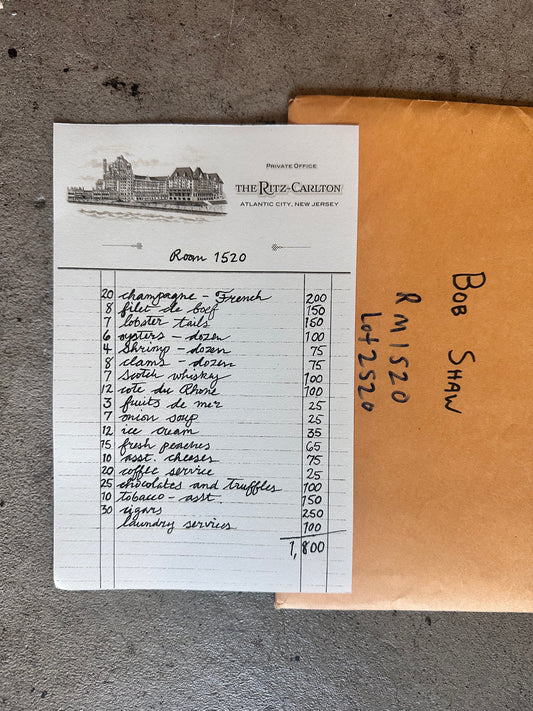 PRIVATE OFFICE
THE RITZ-CARLTON
ATLANTIC CITY, NEW JERSEY
Room 1520
20 champagne - French 200
8 filet de boef 150
7 lobster tails 150
6 oysters - dozen 100
4 Shrimp - dozen 75
8 clams - dozen 75
7 Scotch whisky 100
12 cote du Rhone 100
3 fruits de mer 25
7 onion soup 25
12 ice cream 35
75 fresh peaches 65
10 asst. cheeses 75
20 coffee service 25
25 chocolates and truffles 100
10 tobacco - asst. 150
30 cigars 250
laundry services 100
1,800
BOB SHAW
RM1520
Lot 2520